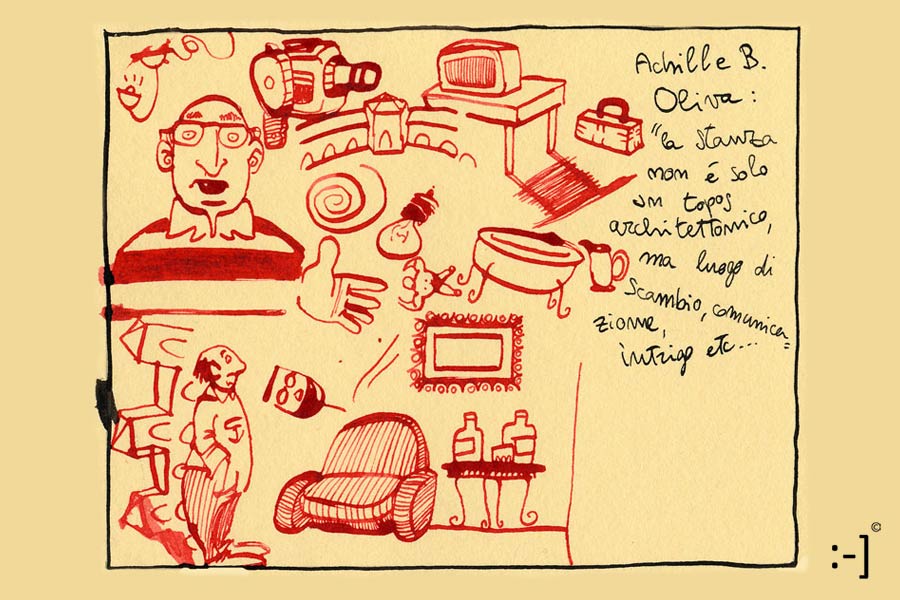 Achille B.
Oliva:
"la stanza
non é solo
un topos
architettonico,
ma luogo di
scambio, comunica=
zione,
intrigo etc...
©
:-]